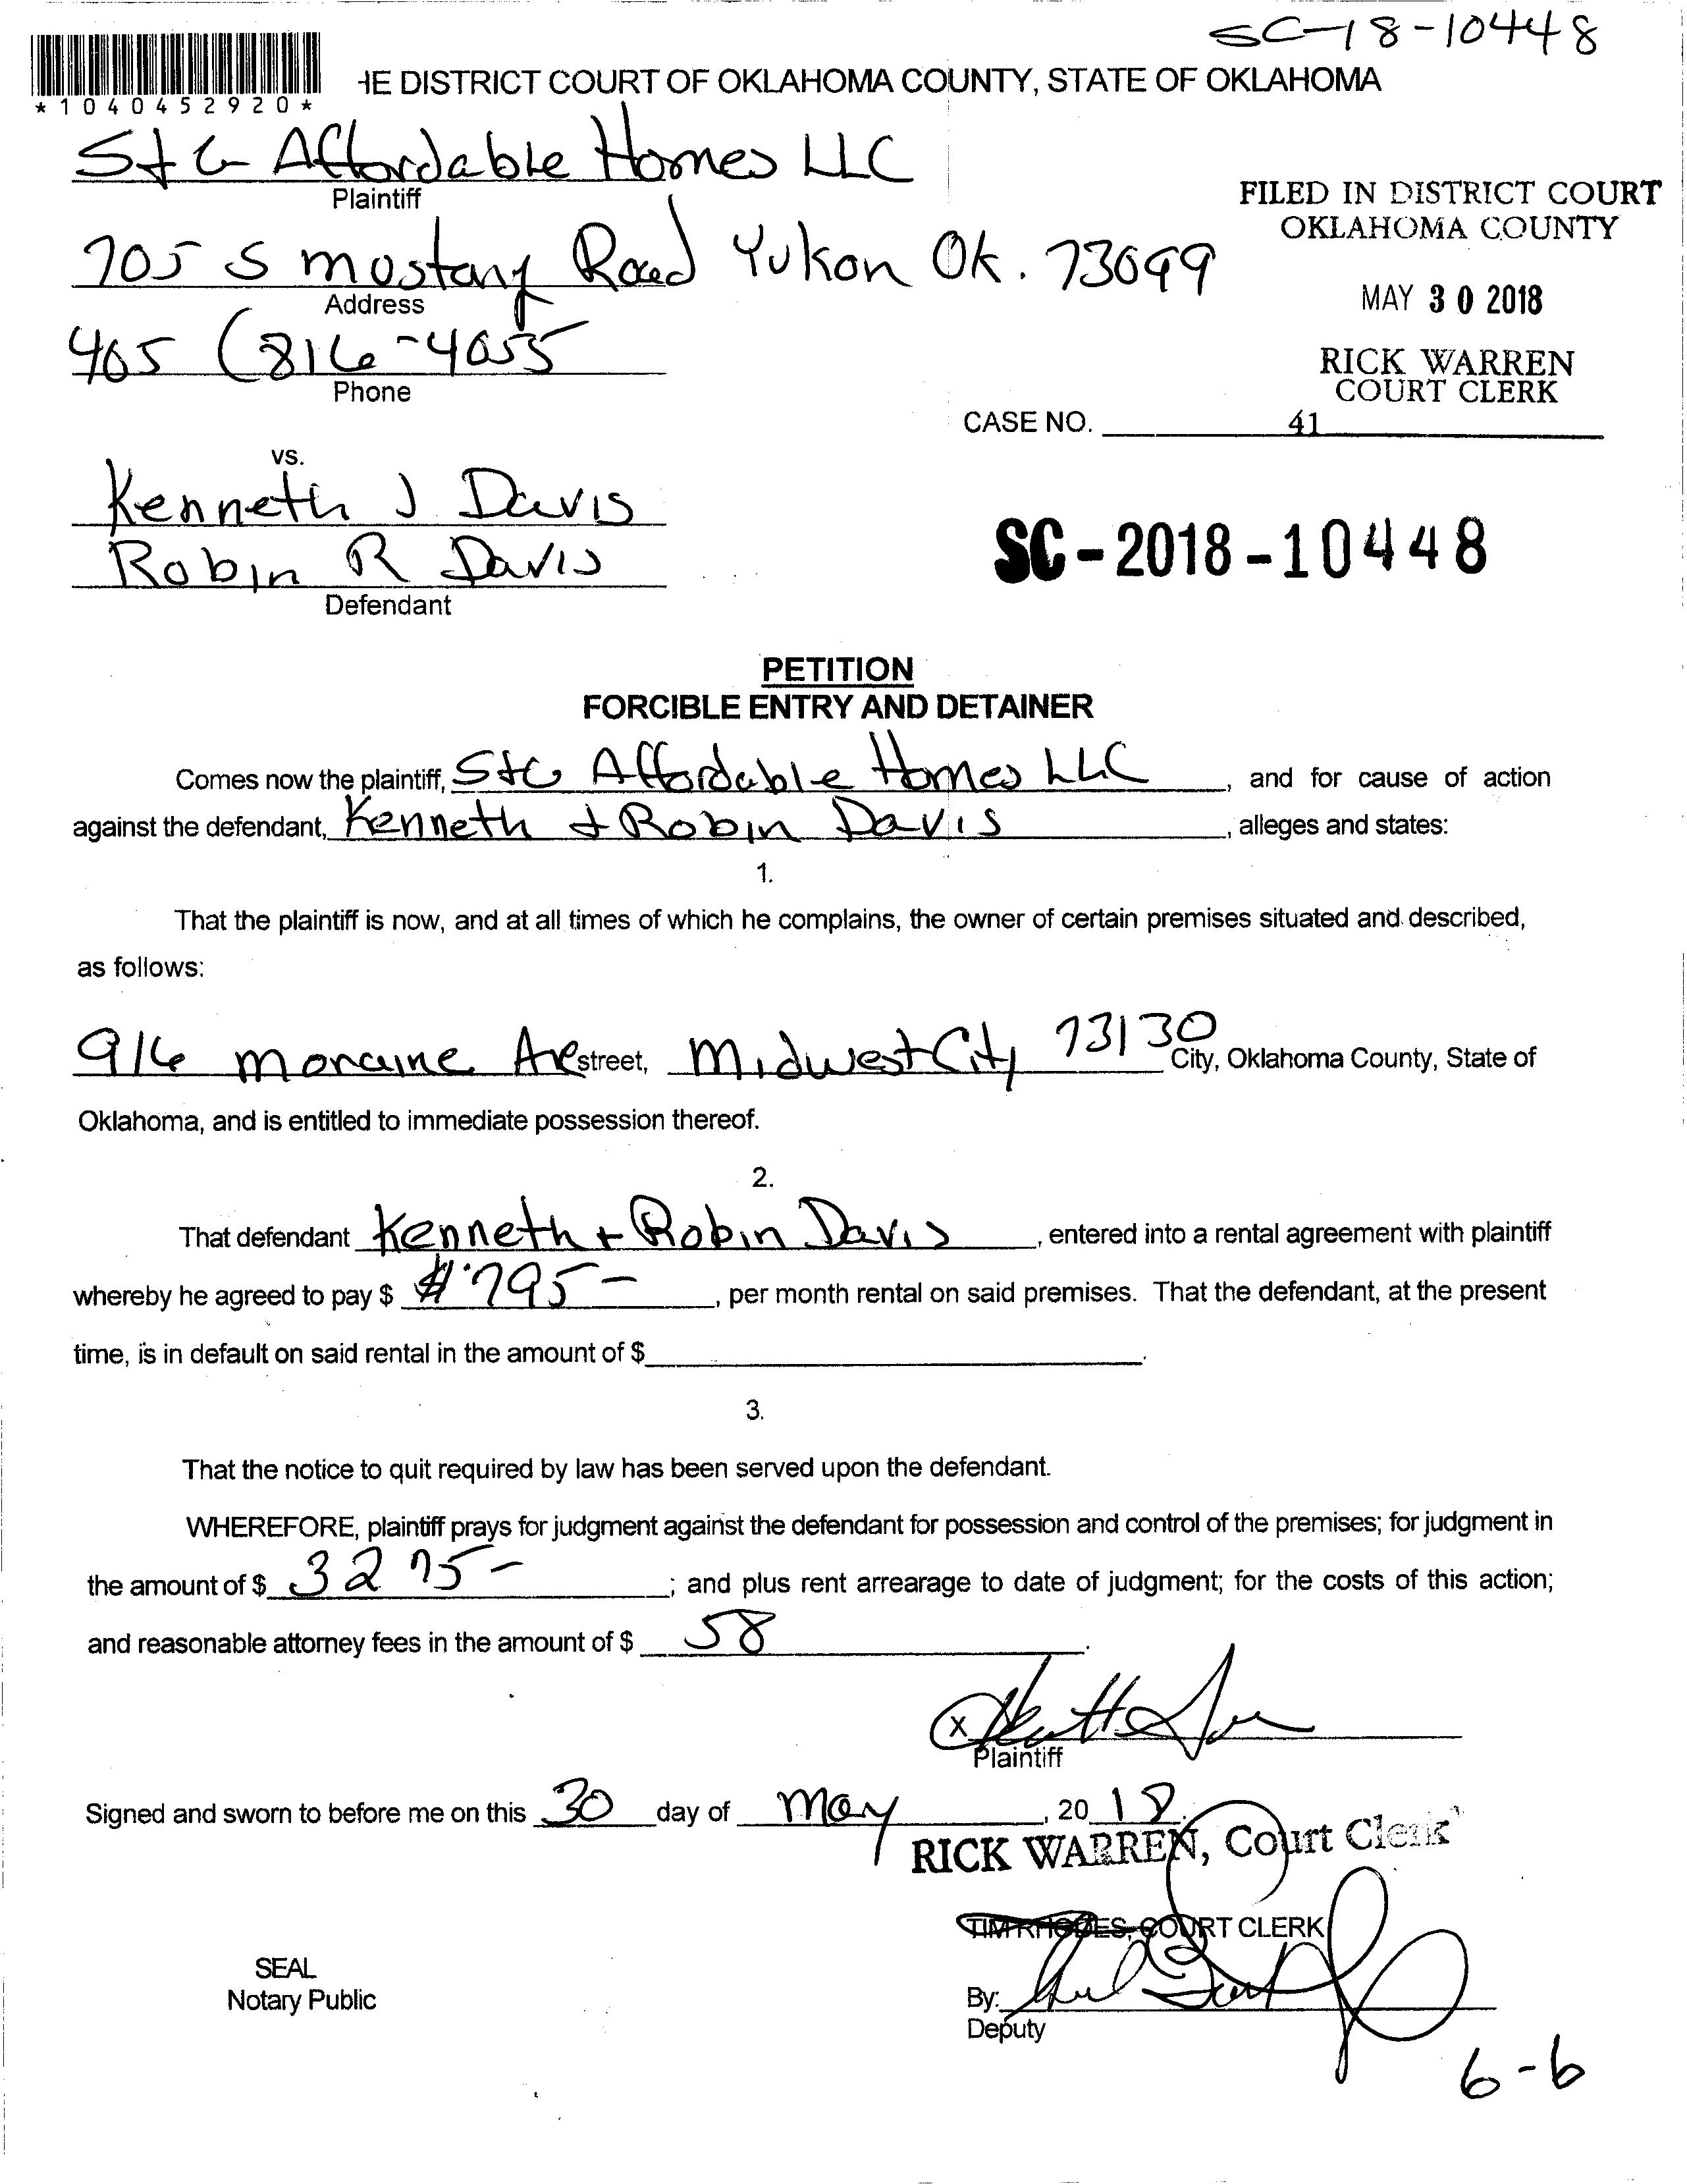 SC-18-10448
*1040452920*
HE DISTRICT COURT OF OKLAHOMA COUNTY, STATE OF OKLAHOMA
S+G Affordable Homes LLC
Plaintiff
FILED IN DISTRICT COURT
OKLAHOMA COUNTY
705 S mustang Road Yukon Ok. 73099
Address
MAY 30 2018
405 (816-4055
Phone
RICK WARREN
COURT CLERK
CASE NO. 41
vs.
Kenneth J Davis
Robin R Davis
Defendant
SC-2018-10448
PETITION
FORCIBLE ENTRY AND DETAINER
Comes now the plaintiff, S+G Affordable Homes LLC, and for cause of action
against the defendant, Kenneth + Robin Davis, alleges and states:
1.
That the plaintiff is now, and at all times of which he complains, the owner of certain premises situated and described,
as follows:
916 moraine Ave street, Midwest City 73130 City, Oklahoma County, State of
Oklahoma, and is entitled to immediate possession thereof.
2.
That defendant Kenneth + Robin Davis, entered into a rental agreement with plaintiff
whereby he agreed to pay $ #795-, per month rental on said premises. That the defendant, at the present
time, is in default on said rental in the amount of $ .
3.
That the notice to quit required by law has been served upon the defendant.
WHEREFORE, plaintiff prays for judgment against the defendant for possession and control of the premises; for judgment in
the amount of $ 3275-; and plus rent arrearage to date of judgment; for the costs of this action;
and reasonable attorney fees in the amount of $ 58.
X
Plaintiff
Signed and sworn to before me on this 30 day of may, 2018.
RICK WARREN, Court Clerk
TIM RHODES, COURT CLERK
SEAL
Notary Public
By:
Deputy
6-6